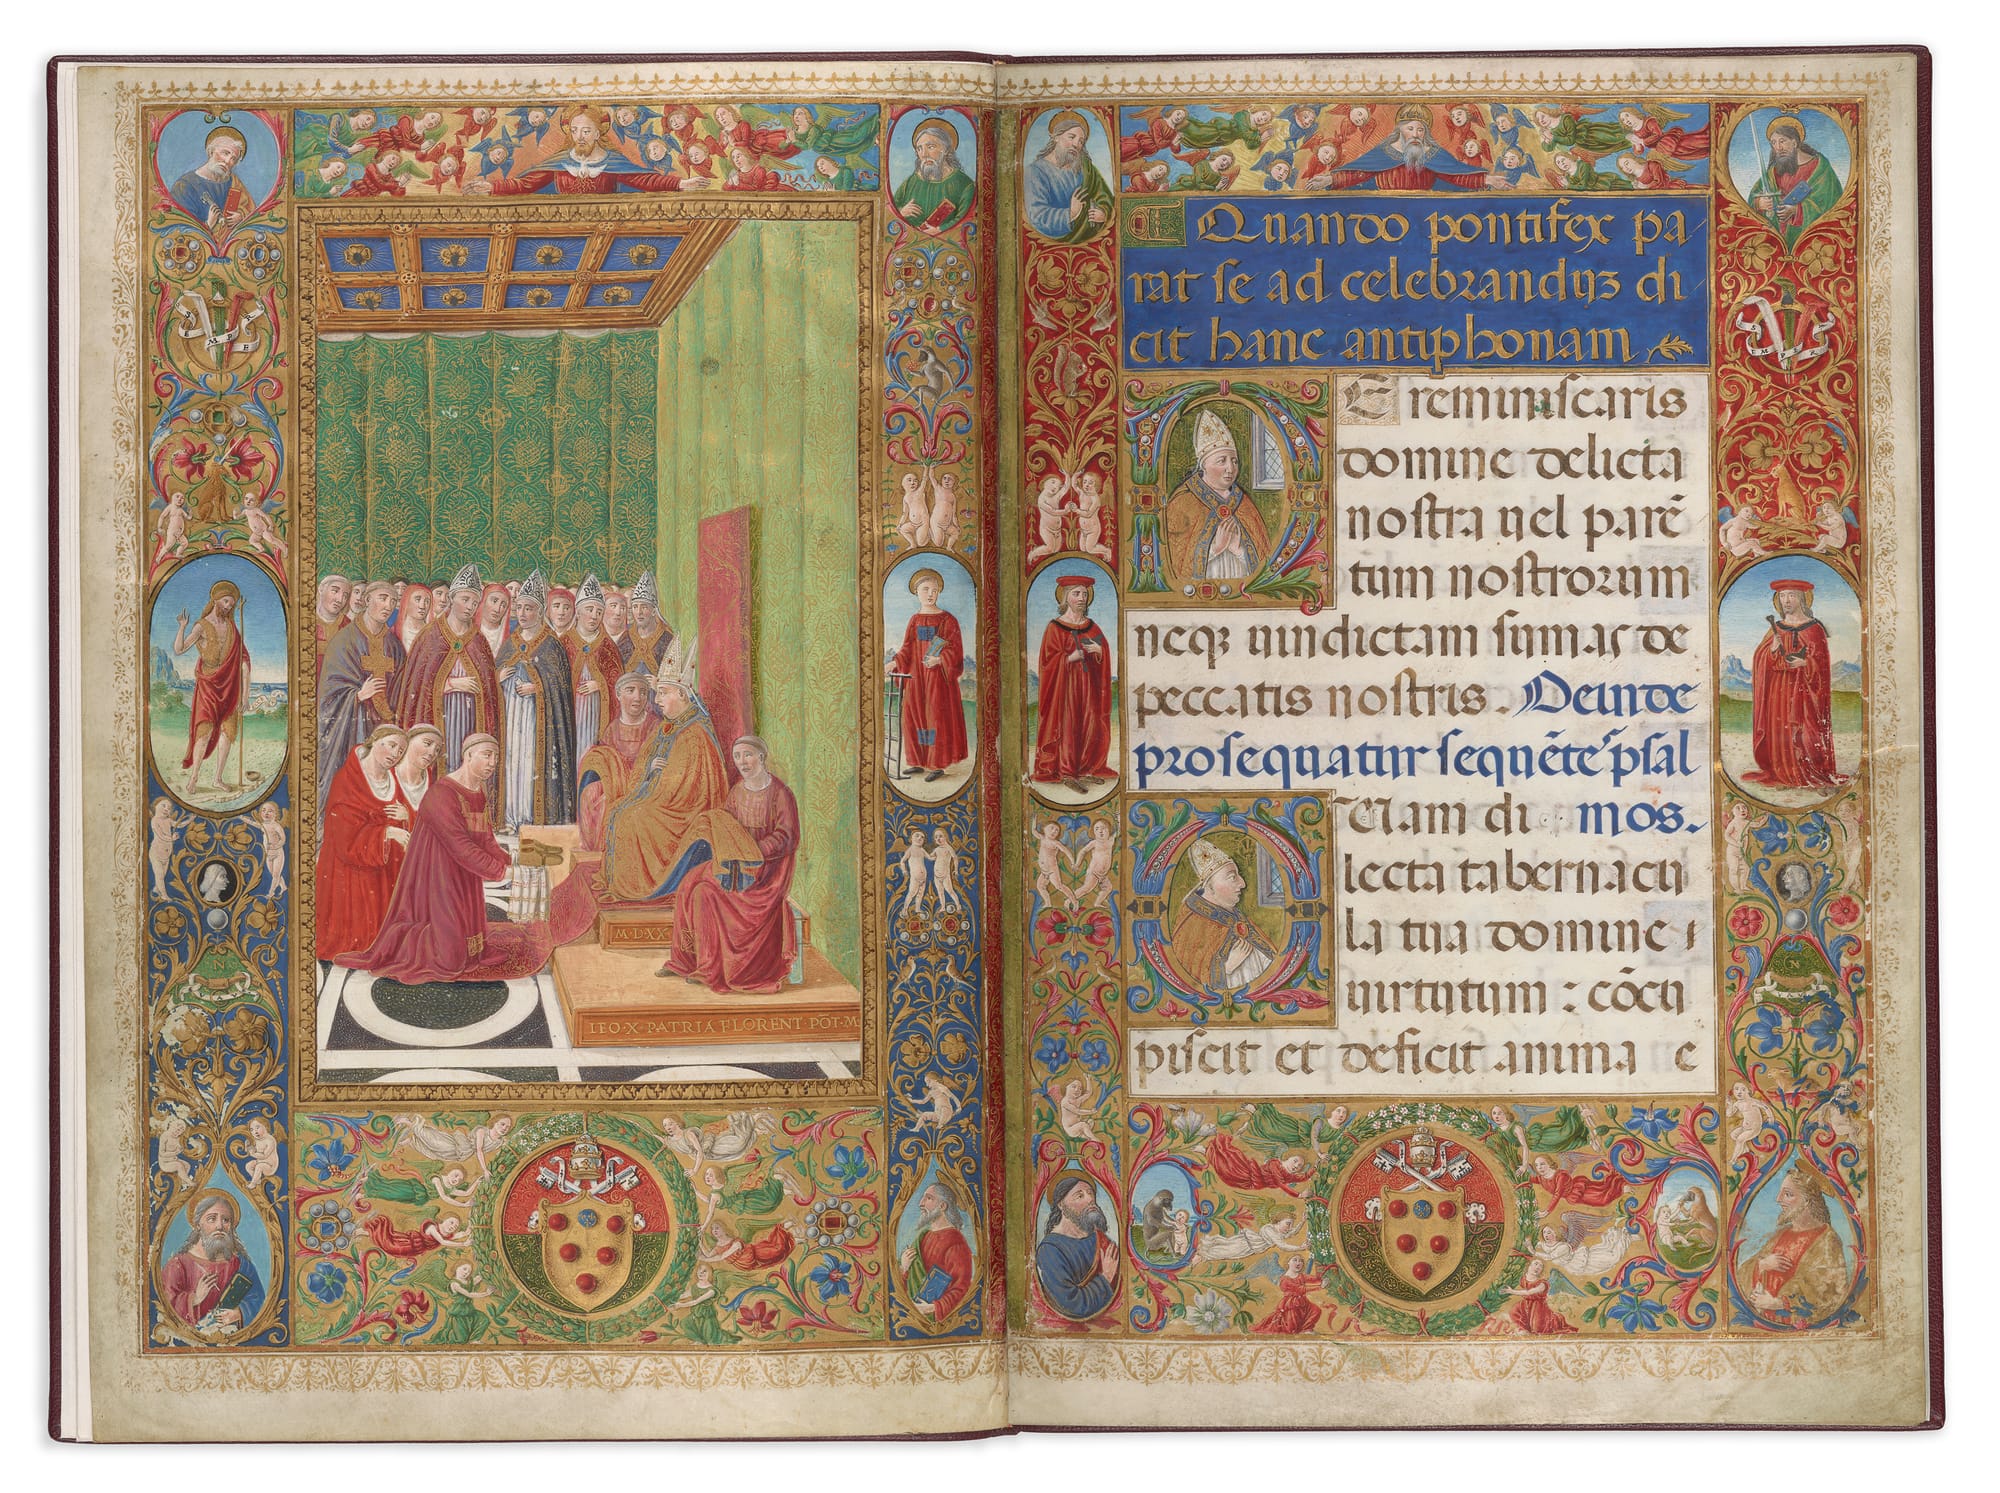 SEMPER
M·D·XX
LEO·X·PATRIA FLORENT·PŌT·M
N
Quando pontifex pa
rat se ad celebranduȝ di
cit hanc antiphonam
NE reminiscaris
domine delicta
nostra uel parē
tum nostrorum
neqȝ uindictam sumas de
peccatis nostris. Deinde
prosequatur sequētes psal
QUam di mos.
lecta tabernacu
la tua domine
uirtutum : cōcu
piscit et deficit anima
SEMPER
N